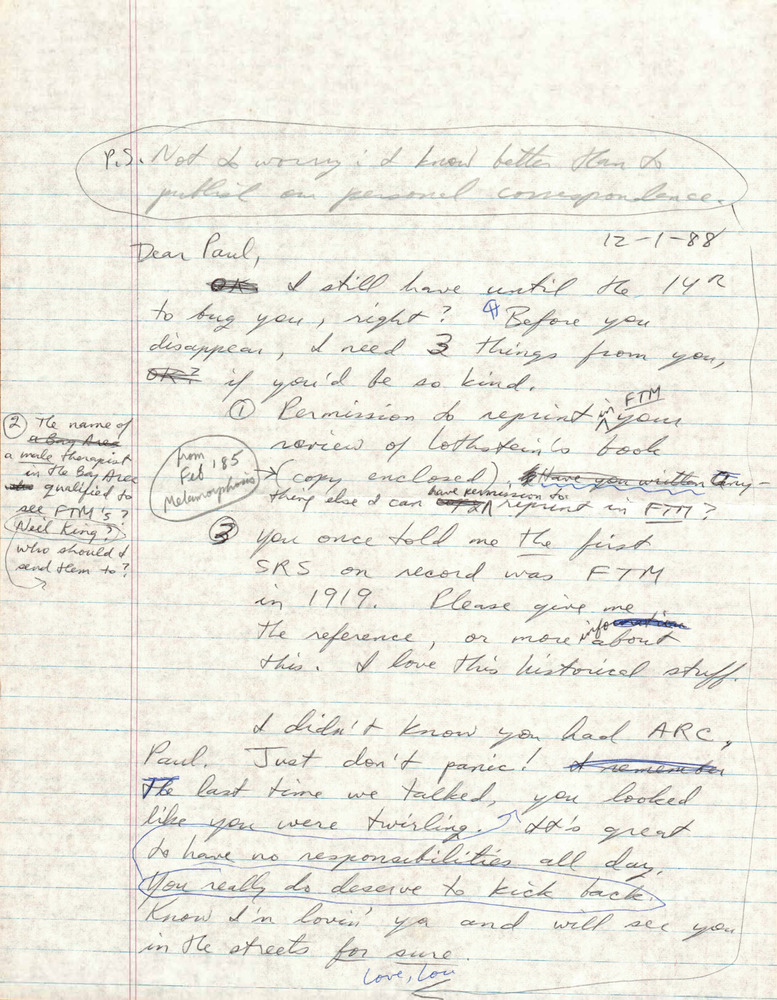 P.S. Not to worry: I know better than to
publish our personal correspondence.
12-1-88
Dear Paul,
OK I still have until the 14th
to bug you, right? Before you
disappear, I need 3 things from you,
OK? if you'd be so kind.
① Permission to reprint in FTM your
review of Lothstein's book
(copy enclosed). Have you written Any-
thing else I can have permission to reprint in FTM?
from
Feb '85
Metamorphosis
② The name of
a Bay Area
a male therapist
in the Bay Area
qualified to
see FTM's?
Neil King?
who should I
send them to?
③ You once told me the first
SRS on record was FTM
in 1919. Please give me
the reference, or more info about
this. I love this historical stuff.
I didn't know you had ARC,
Paul. Just don't panic! I remember
The last time we talked, you looked
like you were twirling. It's great
to have no responsibilities all day.
You really do deserve to kick back.
Know I'm lovin' ya and will see you
in the streets for sure.
Love, Lou